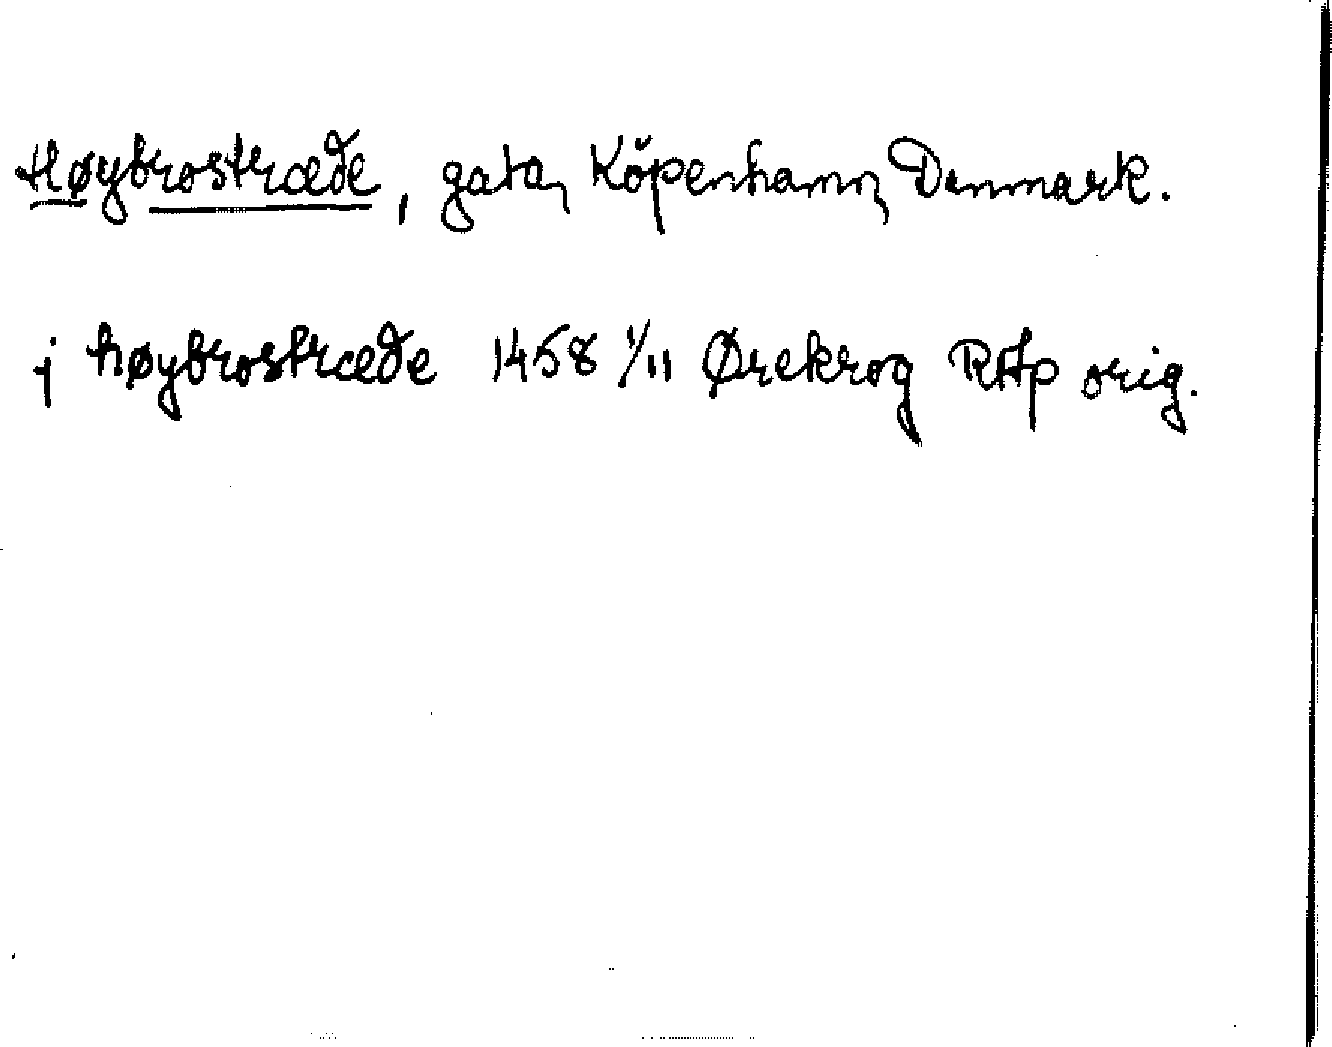 Høybrostræde, gata, Köpenhamn, Danmark.
j høybrostræde 1458 1/11 Ørekrog RAp orig.